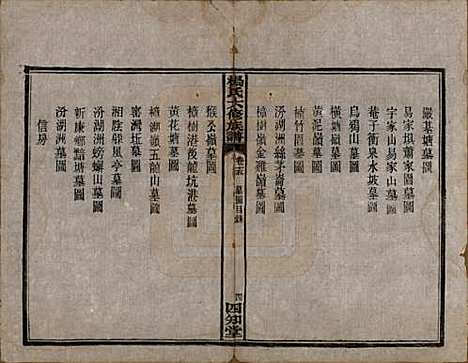 嚴基塘墓圖
易家垻蕭家園墓圖
宇家山易家山墓圖
菴于衝泉水坡墓圖
烏鴉山墓圖
橫塘嶺墓圖
黃泥嶺墓圖
楠竹園墓圖
汾湖洲絲茅崙墓圖
樟樹嶺金雞嶺墓圖
楊氏六修族譜
卷
墓圖目錄
四知堂
猴公嶺墓圖
樟樹港後龍坑港墓圖
黃花塘墓圖
樟湖嶺五龍山墓圖
窰灣坵墓圖
湘陰殺風亭墓圖
汾湖洲螃蠏山墓圖
新康嶺黯塘墓圖
汾湖洲墓圖
信房